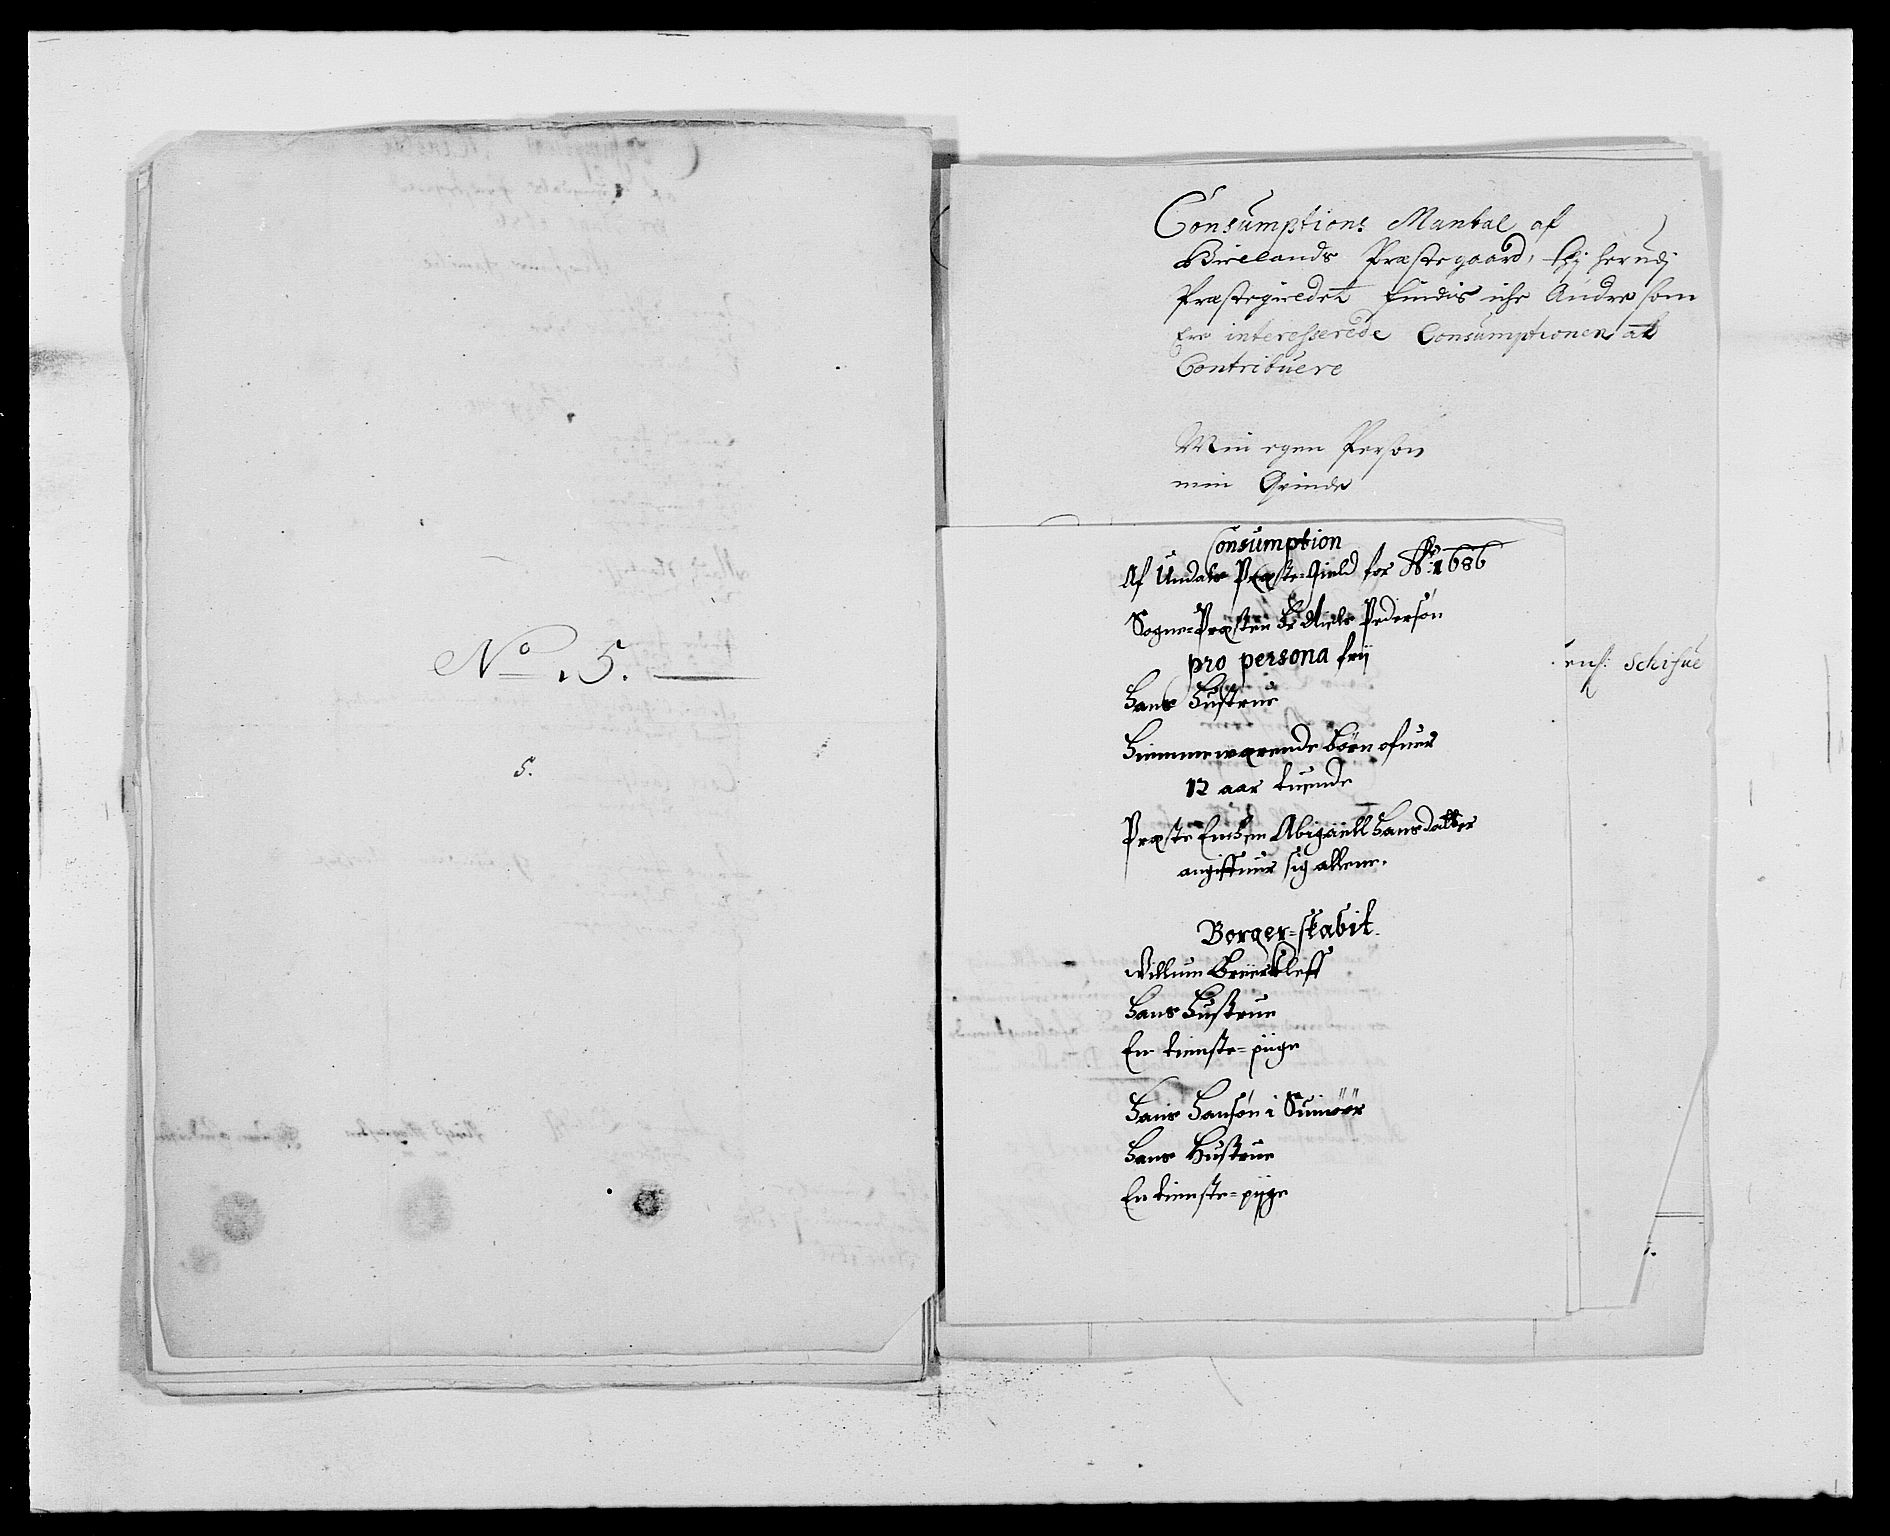 No 15.
5.
Consumptions Mantal af
Bielands Præstegaard, thj herudj
Præstegieldet findis iche Andre som
Ere interesserede Consumptionen at
Contribuere
Min egen Person
min Qvinde
Consumption
Af Undals Præste-Gield for Ao 1686
Sogne-Præsten Hr Niels Pedersøn
pro persona frij
Hans Hustrue
Hiemmeværende børn ofuer
12 aar tuende
Præste Enchen Abigaell Hansdatter
angiffuer sig allene.
Borger-skabit
Villum
Hans Hustrue
En tieniste-piige
Hans Hansøn i Svinøør
Hans Hustrue
En tieniste-pijge
Schifue